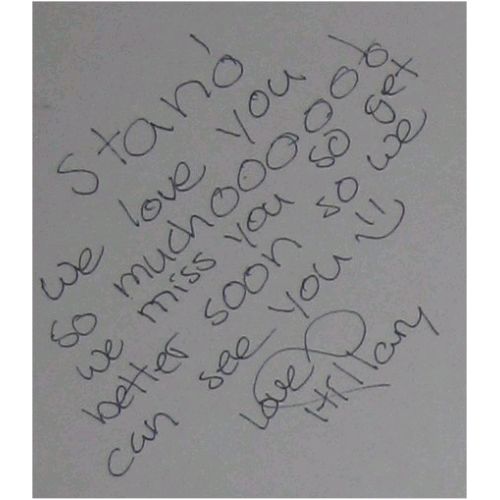 Stano
we love you
so muchooooooo!
we miss you so get
better soon so we
can see you :)
Love
Hillary